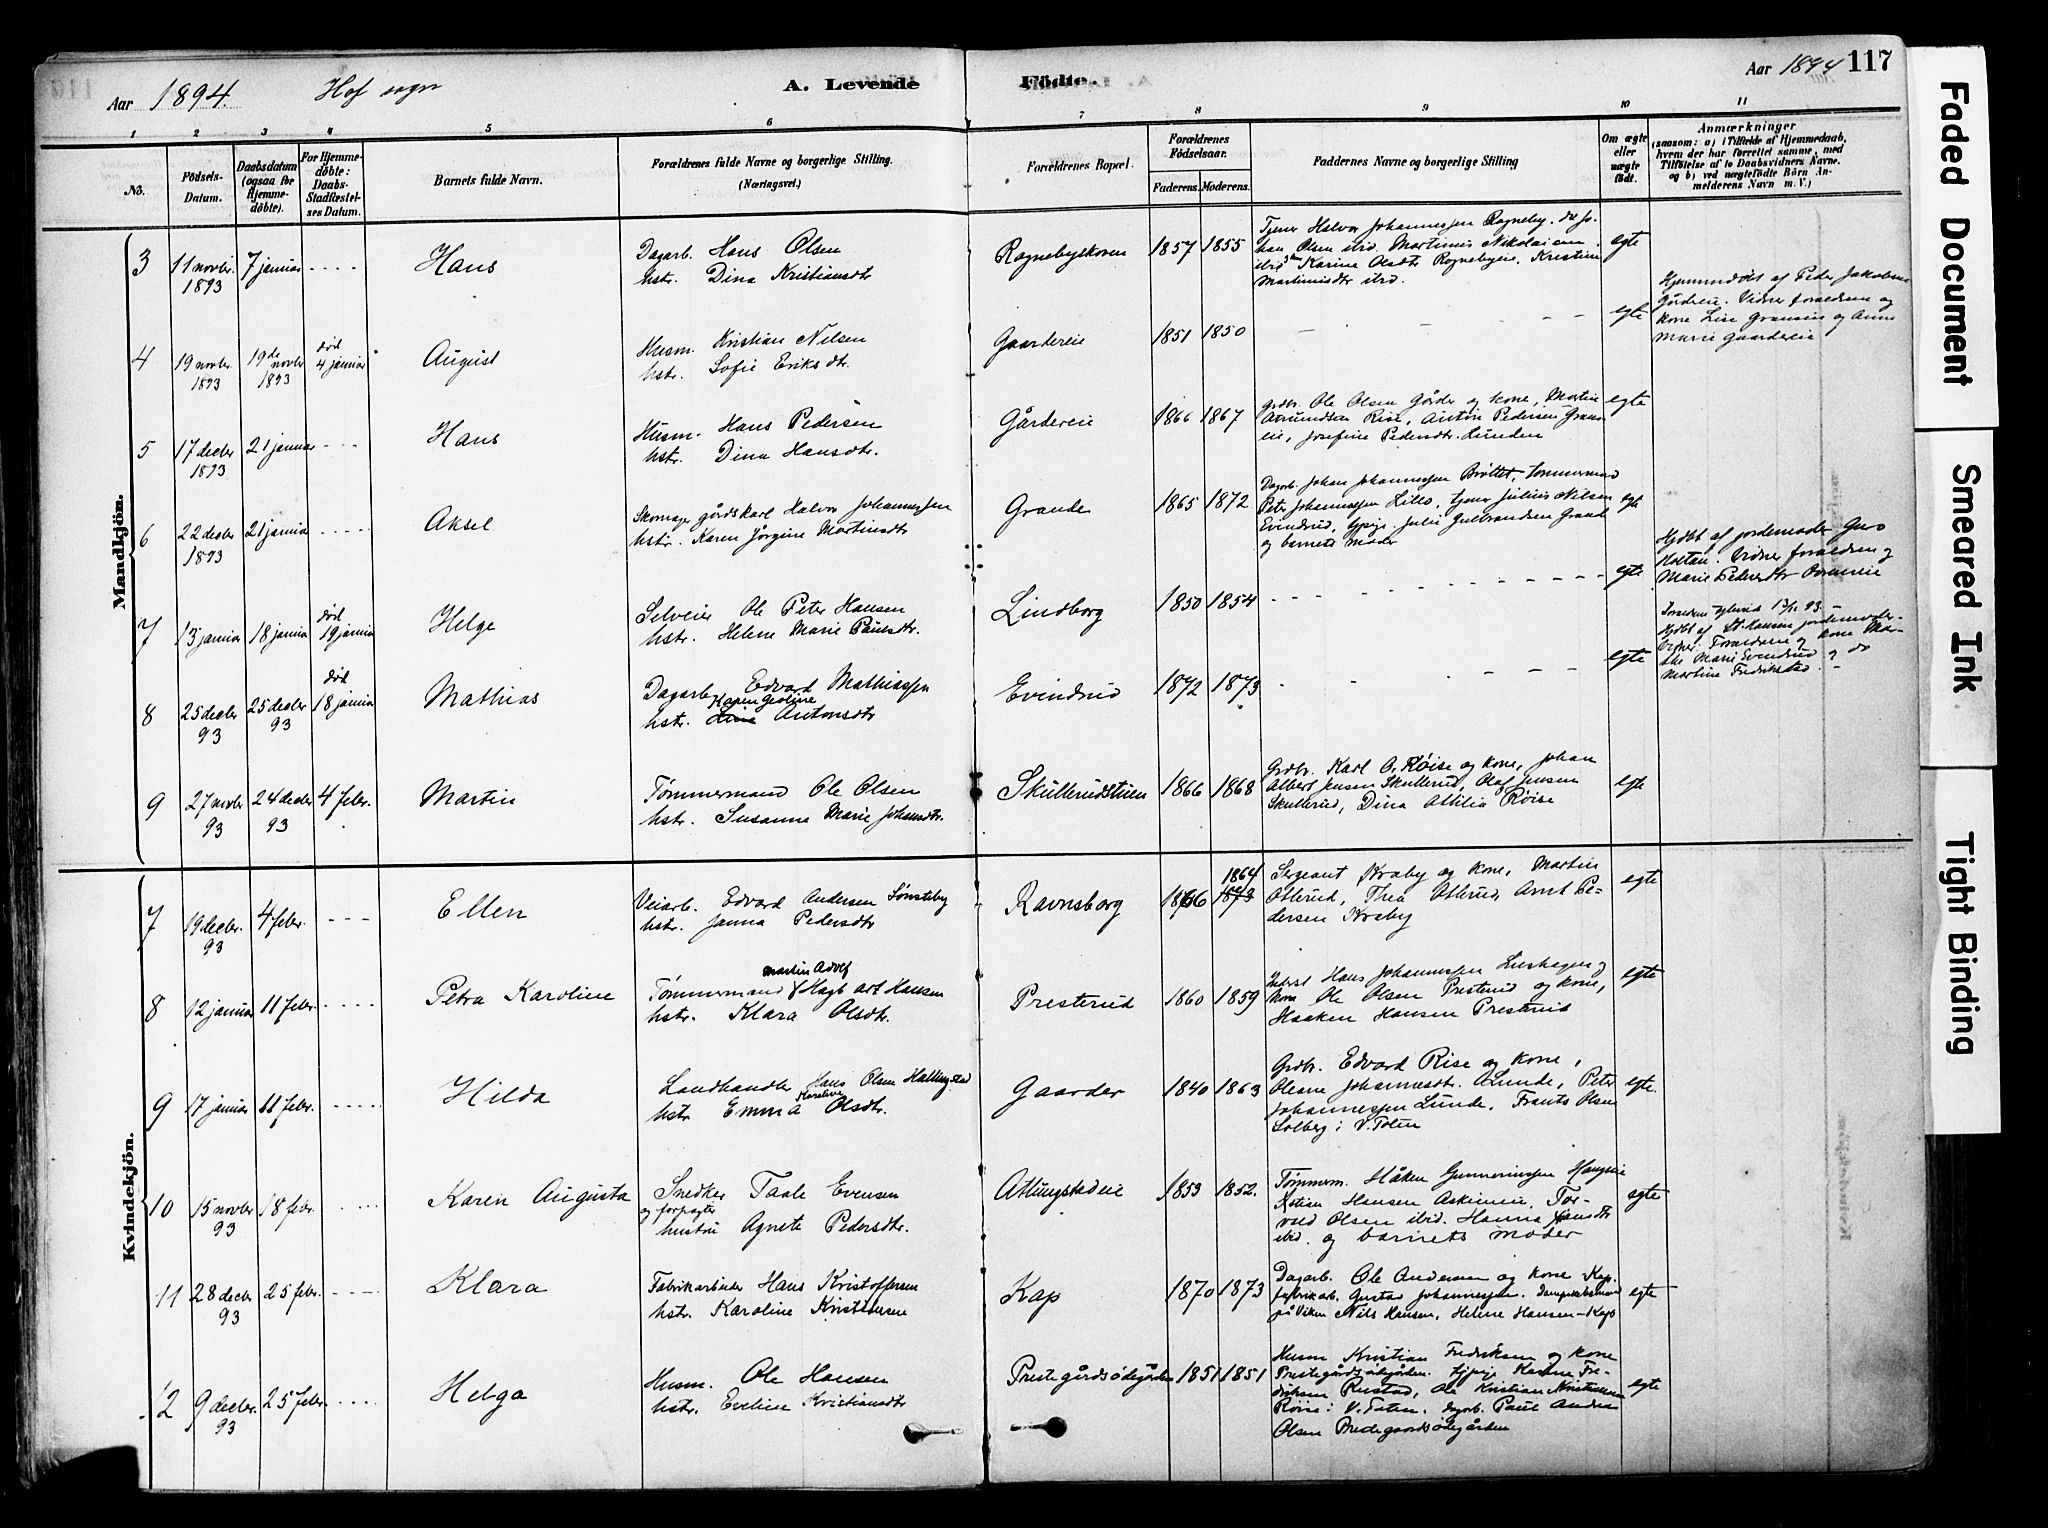 Aar 1894. Hof sogn A. Levende Födte. Aar 1894 117
1 2 3 4 5 6 7 8 9 10 11
No.
Födsels-Datum.
Daabsdatum (ogsaa for Hjemme-döbte).
For Hjemme-döbte: Daabs-Stadfæstel-ses Datum.
Barnets fulde Navn.
Forældrenes fulde Navne og borgerlige Stilling. (Næringsvei.)
Forældrenes Bopæl.
Forældrenes Födselsaar.
Faderens. Moderens.
Faddernes Navne og borgerlige Stilling
Om ægte eller uægte födt.
Anmærkninger
(saasom: a) i Tilfælde af Hjemmedaab,
hvem der har forrettet samme, med
Tilföielse af to Daabsvidners Navne.
og b) ved uægtefödte Börn An-
melderens Navn m. V.)
Mandkjön.
3 11 novbr. 1893 7 januar Hans
Dagarb. Hans Olsen
hstr. Dina Kristiansdtr
Rognebyskoven 1857 1855
Tjener Halvor Johannessen Rogneby. do Jo-
han Olsen ibid. Martinus Nikolaisen
ibid Karine Olsdtr Rognebyeie, Kristine
Martinusdtr ibid.
egte
4 19 novbr. 1893 19de novbr 1893 död 4 januar August
Husm. Kristian Nilsen
hstr. Sofie Eriksdtr.
Gaardereie 1851 1850 egte
Hjemmedöbt af Peder Jakobsen
Gårdereie. Vidner forældrene og
kone Line Granseie og Anne
Marie Gaardereie
5 17 decbr 1893 21 januar Hans
Husm. Hans Pedersen
hstr. Dina Hansdtr.
Gårdereie 1866 1867
Grdbr. Ole Olsen Gårder og kone, Martin
Amundsen Rise, Anton Pedersen Grans-
eie, Josefine Pedersdtr. Lunden
egte
6 22 decbr 1893 21 januar Aksel
Skomager gårdskarl Halvor Johannessen
hstr. Karen Jörgine Martinsdtr
Grande 1865 1872
Dagarb. Johan Johannessen Bröttet, tömmermand
Peter Johannessen Lillo, tjener Julius Nilsen
Evindrud, tjpige Julie Gulbrandsen Grande
og barnets moder
egt
7 13 januar 18 januar död 19 januar Helge
Selveier Ole Peter Hansen
hstr. Helene Marie Paulsdtr.
Lindborg 1850 1854 egte
Hjdbt af jordemoder Guro
Koltan. Vidner forældrene og
Marie Pedersdtr
8 25 decbr 93 25 decbr 93 död 18 januar Mathias
Dagarb. Edvard Mathiassen
Karen Geoline
hstr. Line Antonsdtr
Evindrud 1872 1873 egte
Forældrene 93.
Hjdbt af St. Hansen jordemoder.
Vidner: Forældrene og kone Mar-
the Marie Evindrud og do
Martine Fredrikstad.
9 27 novbr 93 24 decbr 93 4 febr. Martin
Tömmermand Ole Olsen
hstr. Susanne Marie Johansdtr.
Skullerudstuen 1866 1868
Grdbr. Karl O. Röise og kone, Johan
Albert Jensen Skullerud, Olaf Jensen
Skullerud, Dina Attilia Röise
egte
Kvindekjön.
7 19 decbr. 93 4 febr. Ellen
Veiarb. Edvard Andersen Sönsteby
hstr. Janna Pedersdtr
Ravnsborg 1866 1864 1873
Sergeant Kraby og kone, Martin
Otterud, Thea Otterud, Arnt Pe-
dersen Kraby
egte
8 12 januar 11 febr. Petra Karoline
Martin Adolf
Tömmermand Hagbart Hansen
hstr. Klara Olsdtr.
Presterud 1860 1859
Inderst Hans Johannessen Lushagen og
kone Ole Olsen Presterud og kone,
Haaken Hansen Presterud
egte
9 17 januar 11 febr. Hilda
Landhandler Hans Olsen Hallingstad
Karoline
hstr Emma Olsdtr.
Gaarder 1840 1863
Grdbr. Edvard Rise og kone,
Olesne Johannesdtr. Lunde, Peter
Johannessen Lunde. Frants Olsen
Solberg i V. Toten
egte.
10 15 novbr 93 18 febr. Karen Augusta
Snedker Taale Evensen
og forpagter
hustru Agnete Pedersdtr.
Atlungstadeie 1853 1852.
Tömmerm. Håken Gunnerussen Haugseie
Kristian Hansen Askimeie, Tor-
vald Olsen ibid. Hanna Hansdtr
ibid. og barnets moder
egte
11 28 decbr 93 25 febr. Klara
Fabrikarbeider Hans Kristoffersen
hstr. Karoline Kristiansen
Kap 1870 1873
Dagarb. Ole Andersen og kone Kap.
fabrikarb. Gustav Johannessen.
på Viken Nils Hansen, Helene Hansen-Kap
egte
12 9 decbr. 93 25 febr. Helga
Husm. Ole Hansen
hstr. Eveline Kristiansdtr
Prestegårdsödegården 1851 1851
Husm Kristian Fredriksen og kone
Prestegårdsödegården. tjpige Karine Fre-
driksen Rustad, Ole Kristian Kristiansen
Röise i V. Toten. dagarb. Paul Andreas
Olsen Prestegaardsödegården
egte
Faded Document
Smeared Ink
Tight Binding